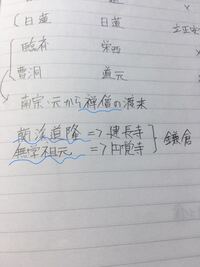 日蓮 日蓮 立正安
臨済 栄西
曹洞 道元
南宗・元から禅僧の渡来
蘭渓道隆 => 建長寺
無学祖元 => 円覚寺 } 鎌倉